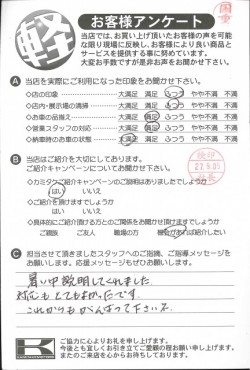 軽
お客様アンケート
当店では、お買い上げ頂いたお客様の声を可能
な限り現場に反映し、お客様により良い商品と
サービスを提供する事に努めています。
大変お手数ですが是非お声をお聞かせ下さい。
A 当店を実際にご利用になった印象をお聞かせ下さい。
◇店の印象 大満足 満足 ふつう やや不満 不満
◇店内・展示場の清掃 大満足 満足 ふつう やや不満 不満
◇お車の品揃え 大満足 満足 ふつう やや不満 不満
◇営業スタッフの対応 大満足 満足 ふつう やや不満 不満
◇納車時のお車の状態 大満足 満足 ふつう やや不満 不満
B 当店はご紹介を大切にしております。
ご紹介キャンペーンについてお聞かせ下さい。
◇カミタケご紹介キャンペーンのご説明はありましたでしょうか
はい いいえ
◇ご紹介を頂けますでしょうか
はい いいえ
◇具体的にご紹介頂ける方とのご関係をお聞かせ頂けますでしょうか
ご親族 ご友人 職場の方 機会があれば紹介したい
27.9.05
C 担当させて頂きましたスタッフへのご指摘、ご指導メッセージを
お願いします。応援メッセージもぜひお願いします。
暑い中説明してくれました
対応もとてもよかったです。
これからもがんばって下さいネ
K
ご協力に心よりお礼を申し上げます。
今後とも宜しくお引き立てご愛顧の程お願い申し上げます。
またのご来店を心からお待ちしております。